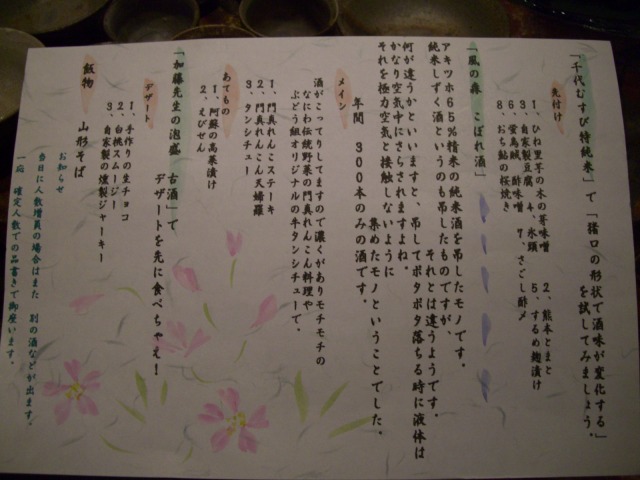 「千代むすび特純米」で「猪口の形状で酒味が変化する」
を試してみましょう。
先付け
1、ひね里芋の木の芽味噌 2、熊本とまと
3、自家製豆腐 4、氷頭 5、するめ麹漬け
6、蛍烏賊 酢味噌 7、さごし酢〆
8、おち鮎の桜焼き
「風の森 こぼれ酒」
アキツホ65%精米の純米酒を吊したモノです。
純米しずく酒というのも吊したものですが、
それとは違うようです。
何が違うかといいますと、吊してポタポタ落ちる時に液体は
かなり空気中にさらされますよね。
それを極力空気と接触しないように
集めたモノということでした。
年間 300本のみの酒です。
メイン
酒がこってりしてますので濃くがありモチモチの
なにわ伝統野菜の門真れんこん料理や
ぶどう組オリジナルの牛タンシチューで。
1、門真れんこステーキ
2、門真れんこん天婦羅
3、タンシチュー
あてもの
1、阿蘇の高菜漬け
2、えびせん
「加藤先生の泡盛 古酒」で
デザートを先に食べちゃえ!
デザート
1、手作りの生チョコ
2、白桃スムージー
3、自家製の燻製ジャーキー
飯物
山形そば
お知らせ
当日に人数増員の場合はまた 別の酒などが出ます。
一応 確定人数での品書きで御座います。